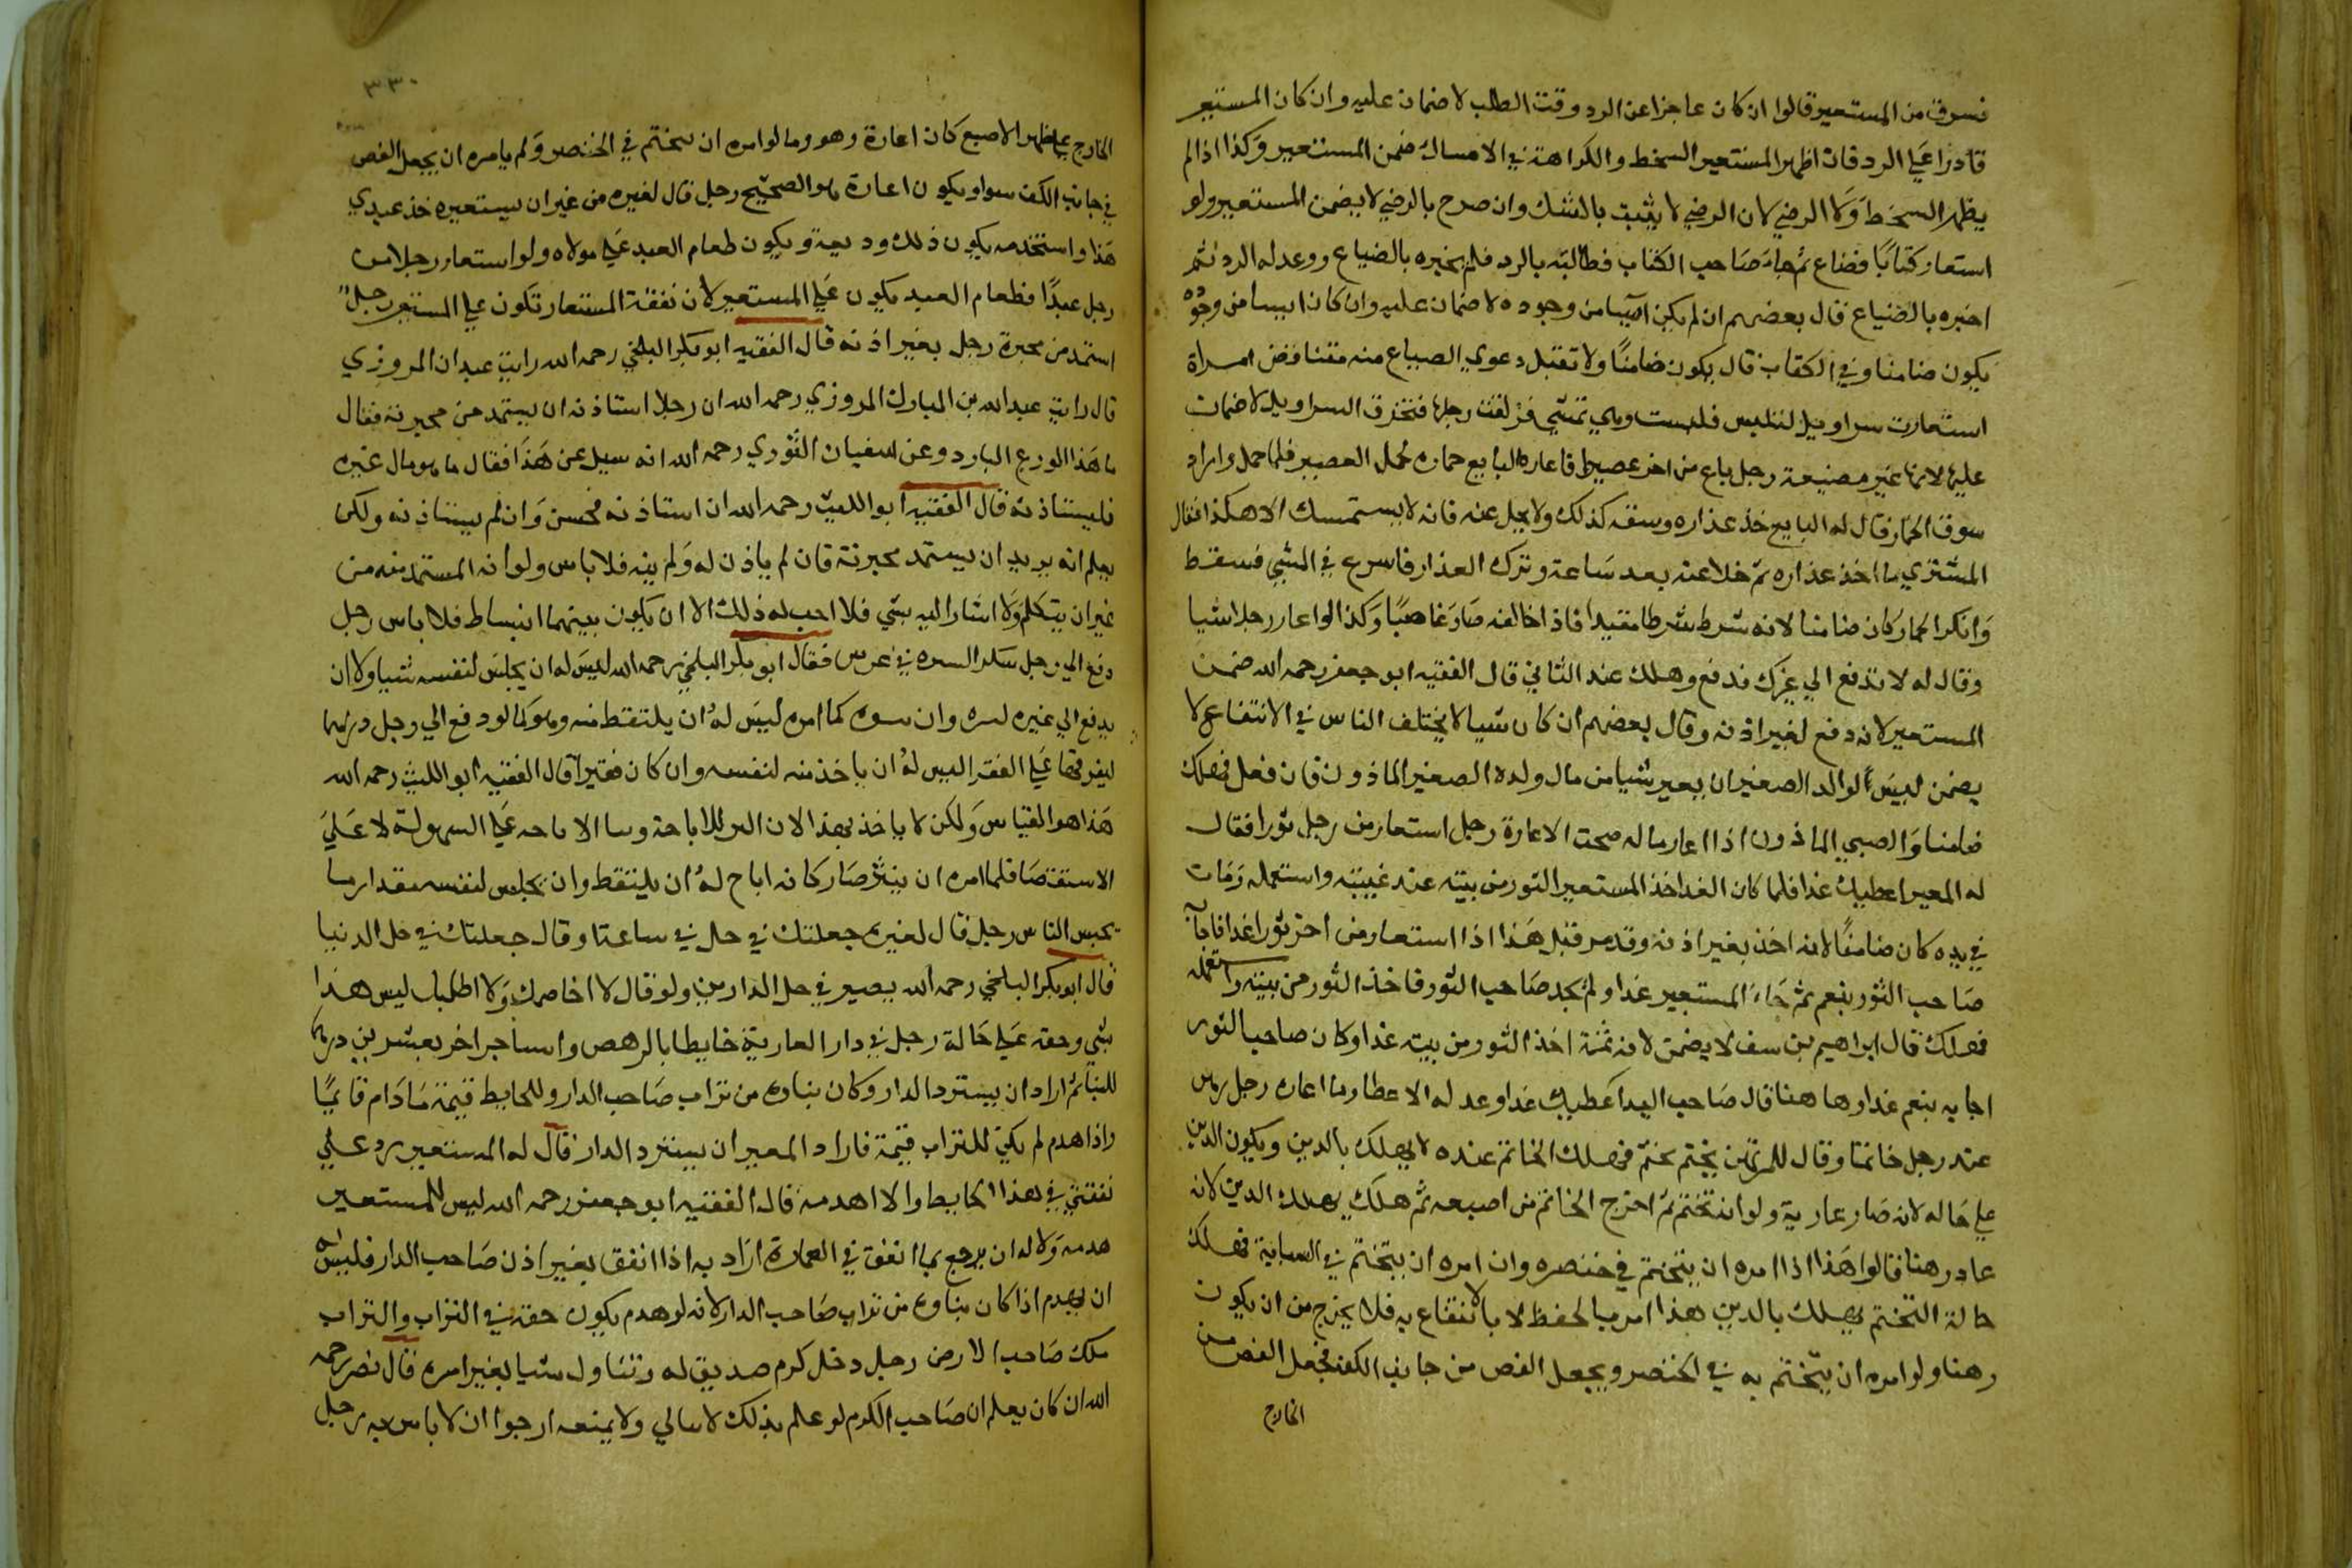 فسرق من المستعير قالوا ان كان عاجزا عن الرد وقت الطلب لا ضمان عليه وان كان المستعير
قادرا علي الرد فان اظهر المستعير السخط والكراهة في الامساك ضمن المستعير وكذا اذا لم
يظهر السخط ولا الرضي لان الرضي لا يثبت بالشك وان صرح بالرضي لا يضمن المستعير ولو
استعار كتابًا فضاع ثم جاء صاحب الكتاب فطالبه بالرد فلم يخبره بالضياع ووعد له الرد ثم
اخبره بالضياع قال بعضهم ان لم يكن آيسا من وجوده لا ضمان عليه وان كان ايسا من وجوده
يكون ضامنا وفي الكتاب قال يكون ضامنًا ولا تقبل دعوي الضياع منه متناقض امراة
استعارت سراويل لتلبس فلبست وهي تمشي فزلقت رجلها فتخرق السراويل لا ضمان
عليها لانها غير مضيعة رجل باع من اخر عصيرا فاعاره البايع حماره لحمل العصير فلما حمل واراد
سوق الحمار قال له البايع خذ عذاره وسقه كذلك ولا يخل عنه فانه لا يستمسك الا هكذا فقال
المشتري ما اخذ عذاره ثم خلا عنه بعد ساعة وترك العذار فاسرع في المشي فسقط
وانكر الحمار كان ضامنا لانه شرط شرطا مقيدا فاذا خالفه صار غاصبًا وكذا لو اعار رجلا شيا
وقال له لا تدفع الي غيرك فدفع وهلك عند الثاني قال الفقيه ابو جعفر رحمه الله ضمن
المستعير لانه دفع لغير اذنه وقال بعضهم ان كان شيا لا يختلف الناس في الانتفاع لا
يضمن ليس لوالد الصغير ان يعير شيا من مال ولده الصغير الماذون فان فعل فهلك
ضامنا والصبي الماذون اذا اعار ماله صحت الاعارة رجل استعار من رجل ثورا فقال
له المعير اعطيك غدا فلما كان الغد اخذ المستعير الثور من بيته عند غيبته واستعمله ومات
في يده كان ضامنًا لانه اخذ بغير اذنه وقد مر قبل هذا اذا استعار من اخر ثورا غدا فاجابه
صاحب الثور بنعم ثم جاء المستعير غدا ولم يجد صاحب الثور فاخذ الثور من بيته واستعمله
فهلك قال ابراهيم بن يوسف لا يضمن لانه ثمة اخذ الثور من بيته غدا وكان صاحب الثور
اجابه بنعم غدا وها هنا قال صاحب اليد اعطيك غدا وعد له الاعطا وما اعاره رجل رهن
عند رجل خاتما وقال للمرتهن تختم فهلك الخاتم عنده لا يهلك بالدين ويكون الدين
علي حاله لانه صار عارية ولو انه تختم ثم اخرج الخاتم من اصبعه ثم هلك يهلك الدين لانه
عاد رهنا قالوا هذا اذا امره ان يتختم في خنصره وان امره ان يتختم في السبابة فهلك
حالة التختم يهلك بالدين هذا امر بالحفظ لا بالانتفاع به فلا يخرج من ان يكون
رهنا ولو امره ان يتختم به في الخنصر ويجعل الفص من جانب الكف فجعل الفص من
الخارج
٣٣٠
الخارج علي ظهر الاصبع كان اعارة وهو وما لو امره ان يتختم في الخنصر ولم يامره ان يجعل الفص
في جانب الكف سوا ويكون اعارة هو الصحيح رجل قال لغيره من غير ان يستعيره خذ عبدي
هذا واستخدمه يكون ذلك وديعة ويكون طعام العبد علي مولاه ولو استعار رجل من
رجل عبدًا فطعام العبد يكون علي المستعير لان نفقة المستعار تكون علي المستعير رجل
استمد من محبرة رجل بغير اذنه قال الفقيه ابو بكر البلخي رحمه الله رايت عبدان المروزي
قال رايت عبد الله بن المبارك المروزي رحمه الله ان رجلا استاذنه ان يستمد من محبرته فقال
ما هذا الورع البارد وعن سفيان الثوري رحمه الله انه سيل عن هذا فقال ما هو مال غيره
فليستاذنه قال الفقيه ابو الليث رحمه الله ان استاذنه فحسن وان لم يستاذنه ولكن
يعلم انه يريد ان يستمد محبرته فان لم ياذن له ولم ينه فلا باس ولو انه المستمد منه من
غير ان يتكلم ولا اشار اليه بشي فلا احب له ذلك الا ان يكون بينهما انبساط فلا باس رجل
دفع الي رجل سكر السره في عرس فقال ابو بكر البلخي رحمه الله ليس له ان يحبس لنفسه شيا ولا ان
يدفع الي غيره لسره وان سره كما امره ليس له ان يلتقط منه وهو كما لو دفع الي رجل درهما
ليفرقها علي الفقرا ليس له ان ياخذ منه لنفسه وان كان فقيرا قال الفقيه ابو الليث رحمه الله
هذا هو القياس ولكن لا ياخذ بهذا لان للاباحة الاباحه علي السهولة لا علي
الاستقصا فلما امره ان ينثر صار كانه اباح له ان يلتقط وان يحبس لنفسه مقدار ما
يحبس الناس رجل قال لغيره جعلتك في حل في ساعة او قال جعلتك في حل الدنيا
قال ابو بكر البلخي رحمه الله يصير في حل الدارين ولو قال لا اخاصمك ولا اطلبك ليس هذا
بشي وحقه علي حالة رجل في دار العارية حايطا بالرهص واستاجر اخر بعشرين درهما
للبنا ثم اراد ان يسترد الدار وكان بناوه من تراب صاحب الدار وللحايط قيمة ما دام قايمًا
واذا هدم لم يكن للتراب قيمة فاراد المعير ان يسترد الدار قال له المستعير رد علي
نفقتي في هذا الحايط والا اهدمه قال الفقيه ابو جعفر رحمه الله ليس للمستعير
هدمه ولا له ان يرجع بما انفق في العمارة اراد به اذا انفق بغير اذن صاحب الدار فليس له
ان يهدم اذا كان بناوه من تراب صاحب الدار لانه لو هدم يكون حقه في التراب والتراب
ملك صاحب الارض رجل دخل كرم صديق له وتناول شيا بغير امره قال نصر رحمه
الله ان كان يعلم ان صاحب الكرم لو علم بذلك لا يبالي ولا يمنعه ارجوا ان لا باس به رجل